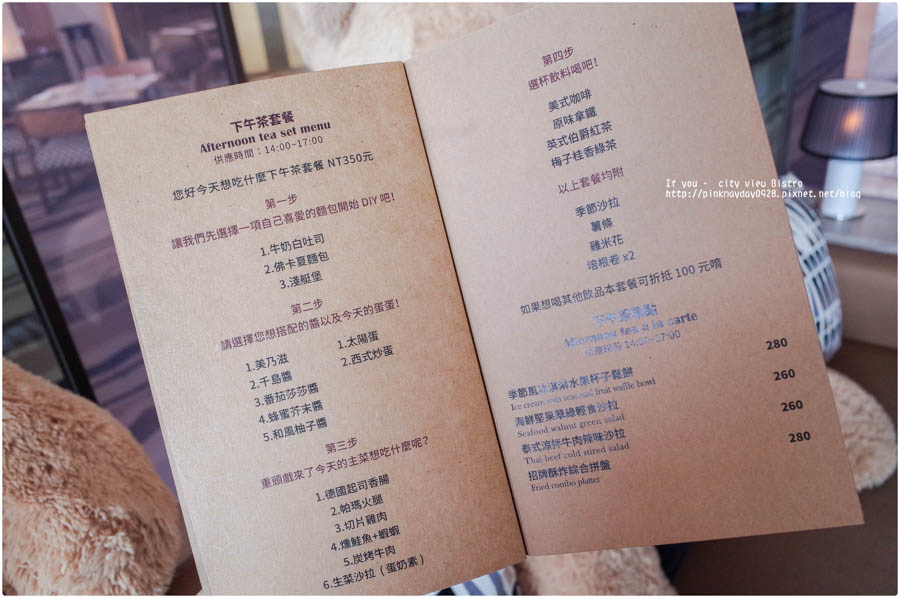 下午茶套餐
Afternoon tea set menu
供應時間：14:00~17:00
您好今天想吃什麼下午茶套餐 NT350元
第一步
讓我們先選擇一項自己喜愛的麵包開始 DIY 吧!
1.牛奶白吐司
2.佛卡夏麵包
3.淺艇堡
第二步
請選擇您想搭配的醬以及今天的蛋蛋!
1.美乃滋
2.千島醬
3.番茄莎莎醬
4.蜂蜜芥末醬
5.和風柚子醬
1.太陽蛋
2.西式炒蛋
第三步
重頭戲來了今天的主菜想吃什麼呢?
1.德國起司香腸
2.帕瑪火腿
3.切片雞肉
4.燻鮭魚+蝦蝦
5.炭烤牛肉
6.生菜沙拉 ( 蛋奶素 )
第四步
選杯飲料喝吧!
美式咖啡
原味拿鐵
英式伯爵紅茶
梅子桂香綠茶
以上套餐均附
季節沙拉
薯條
雞米花
培根卷 x2
如果想喝其他飲品本套餐可折抵 100 元唷
下午茶單點
Afternoon tea a la carte
供應時間 14:00~17:00
季節風冰淇淋水果杯子鬆餅 280
Ice cream with seasonal fruit waffle bowl
海鮮堅果凝綠輕食沙拉 260
Seafood walnut green salad
泰式涼拌牛肉辣味沙拉 260
Thai beef cold stired salad
招牌酥炸綜合拼盤 280
Fried combo platter
If you · city view Bistro
http://pinknayday0428.pixnet.net/blog